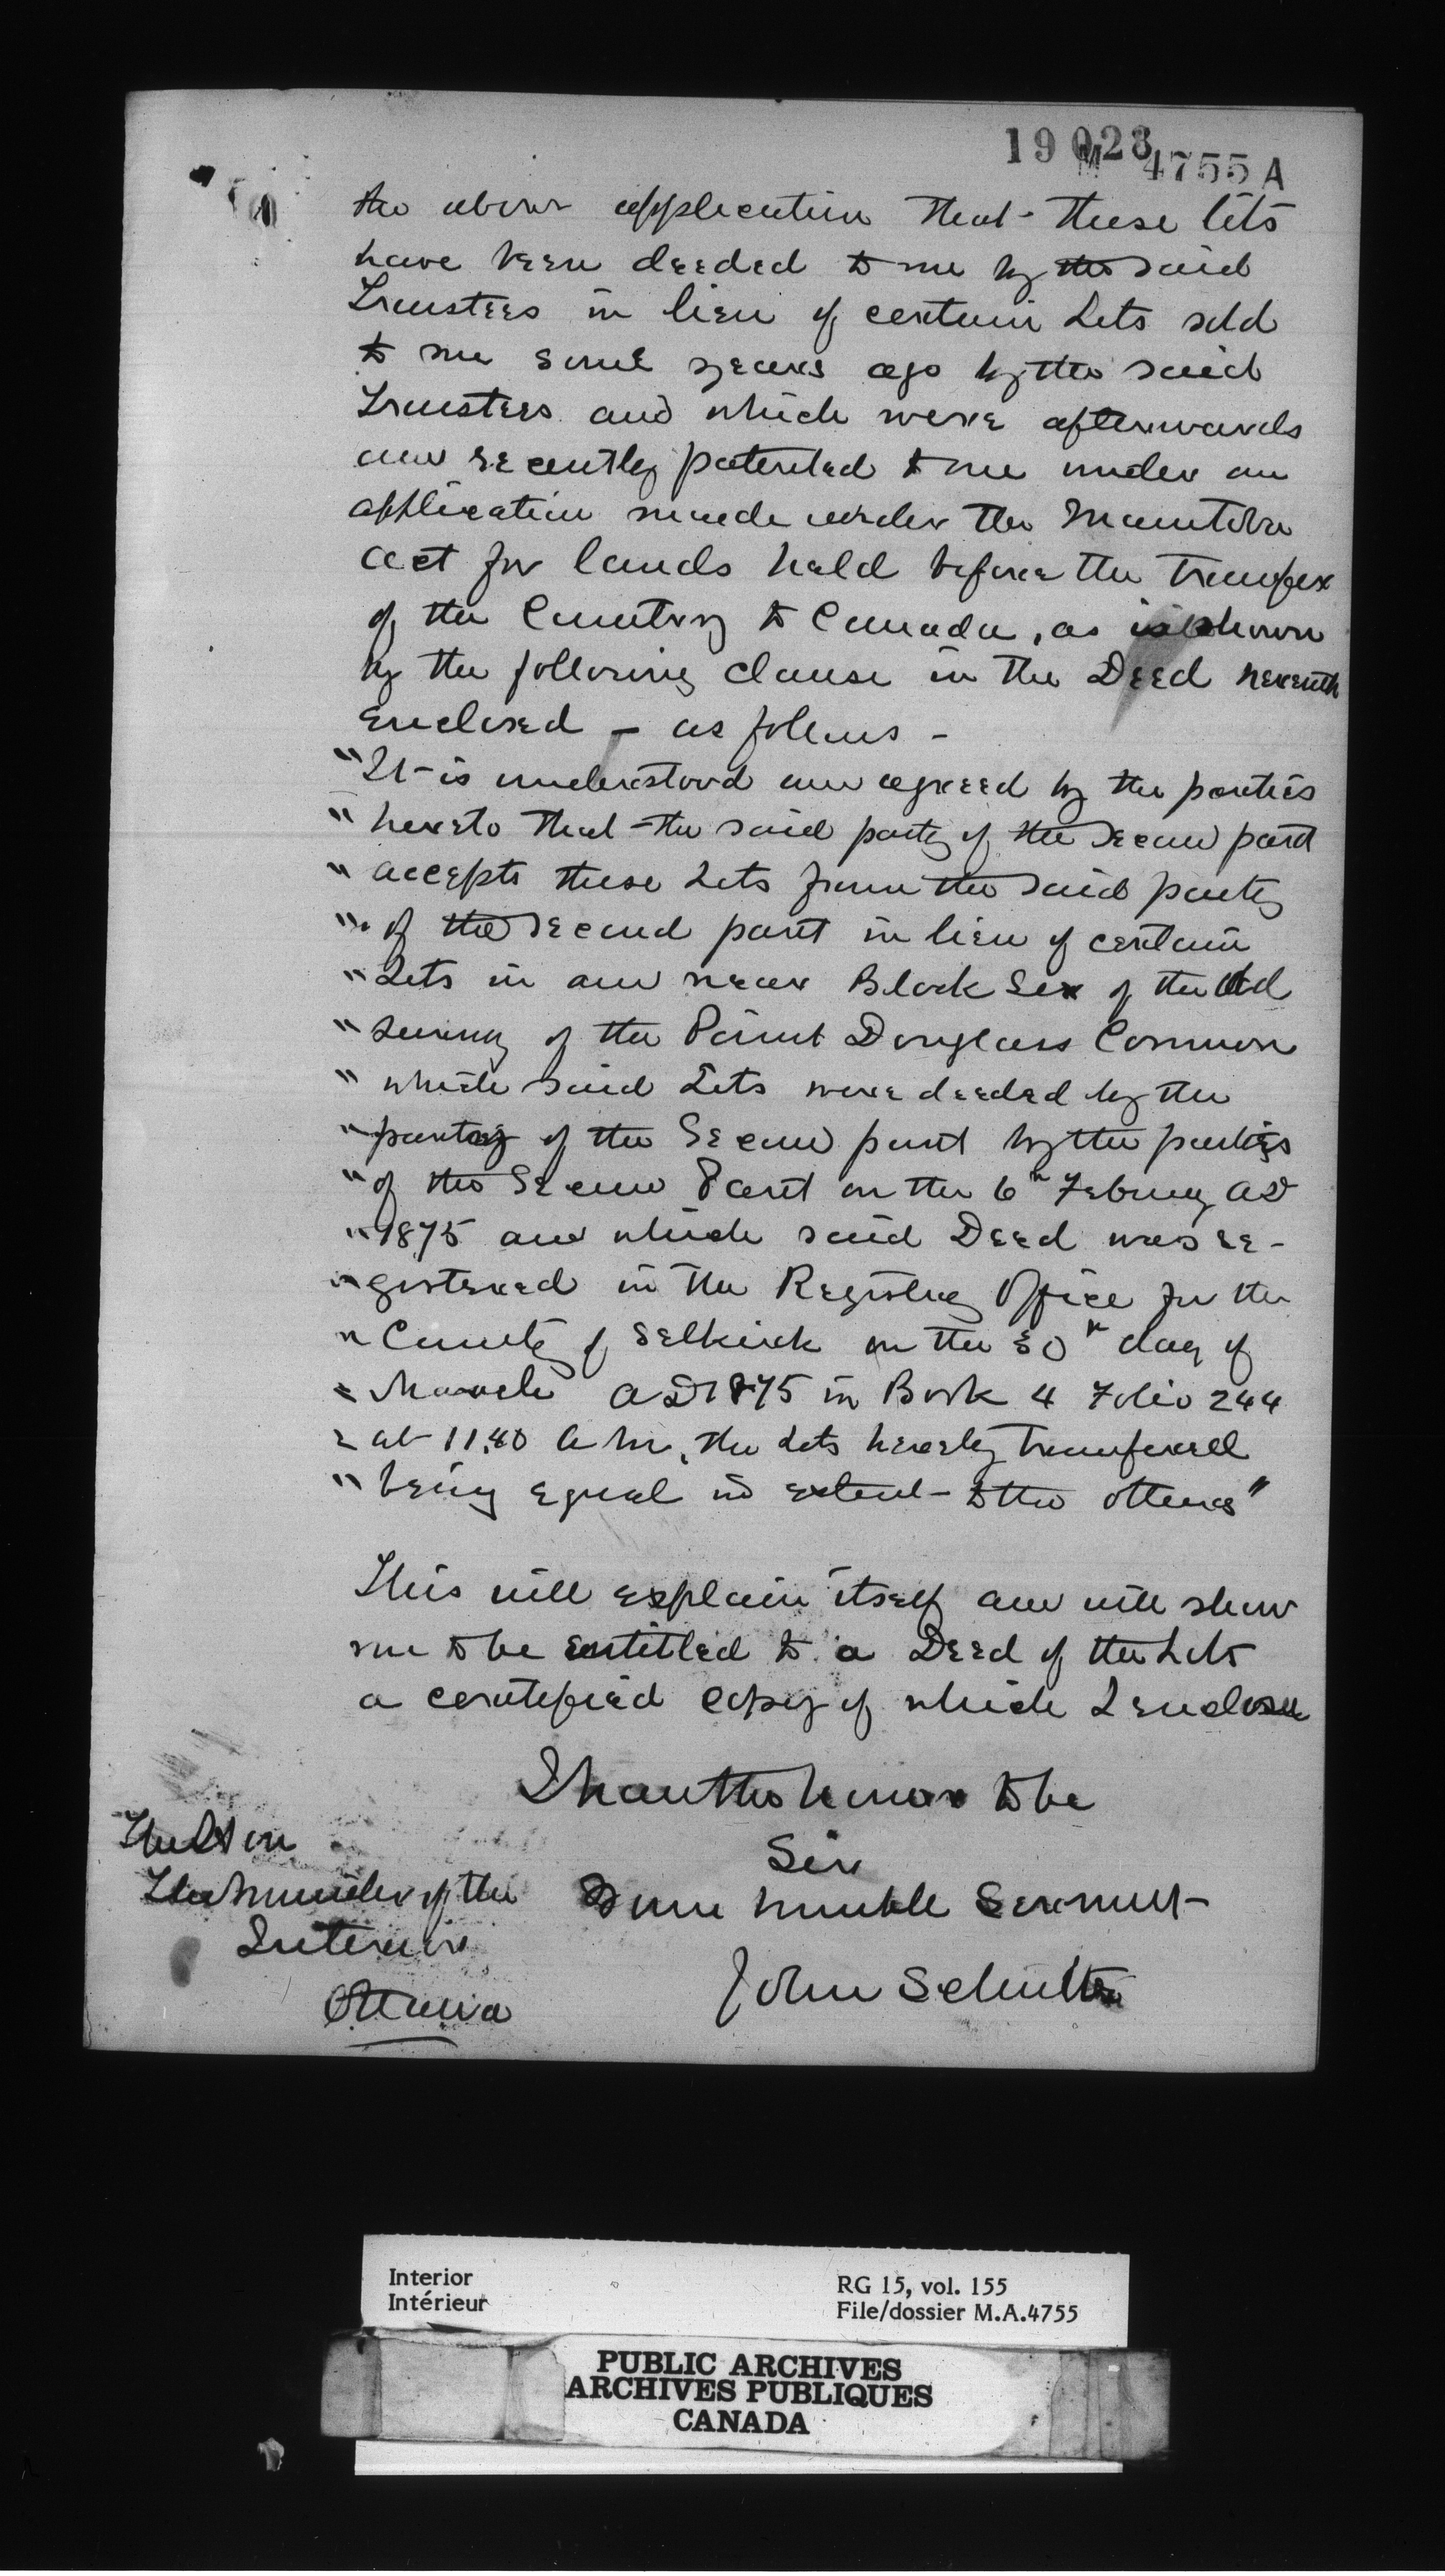 19023
M 4755 A
the above application that these lots
have been deeded to me by the said
Trustees in lieu of certain Lots sold
to me some years ago by the said
Trustees and which were afterwards
and recently patented to me under an
application made under the Manitoba
act for lands held before the transfer
of the Country to Canada, as is shown
by the following clause in the Deed herewith
enclosed – as follows –
"It is understood and agreed by the parties
" hereto that the said party of the Second part
" accepts these Lots from the said party
" of the Second part in lieu of certain
" Lots in and near Block Six of the Old
" survey of the Point Douglass Common
" which said Lots were deeded by the
" party of the Second part by the parties
" of the Second Part on the 6th February AD
" 1875 and which said Deed was re-
" gistered in the Registry Office for the
" County of Selkirk on the 30th day of
" March AD 1875 in Book 4 Folio 244
" at 11.40 A M, the Lots hereby transferred
" being equal in extent to the others"
This will explain itself and will show
me to be entitled to a Deed of the Lots
a certified copy of which I enclose
I have the honor to be
Sir
Your humble Servant
John Schultz
The Hon
The Minister of the
Interior
Ottawa
Interior
Intérieur
RG 15, vol. 155
File/dossier M.A.4755
PUBLIC ARCHIVES
ARCHIVES PUBLIQUES
CANADA